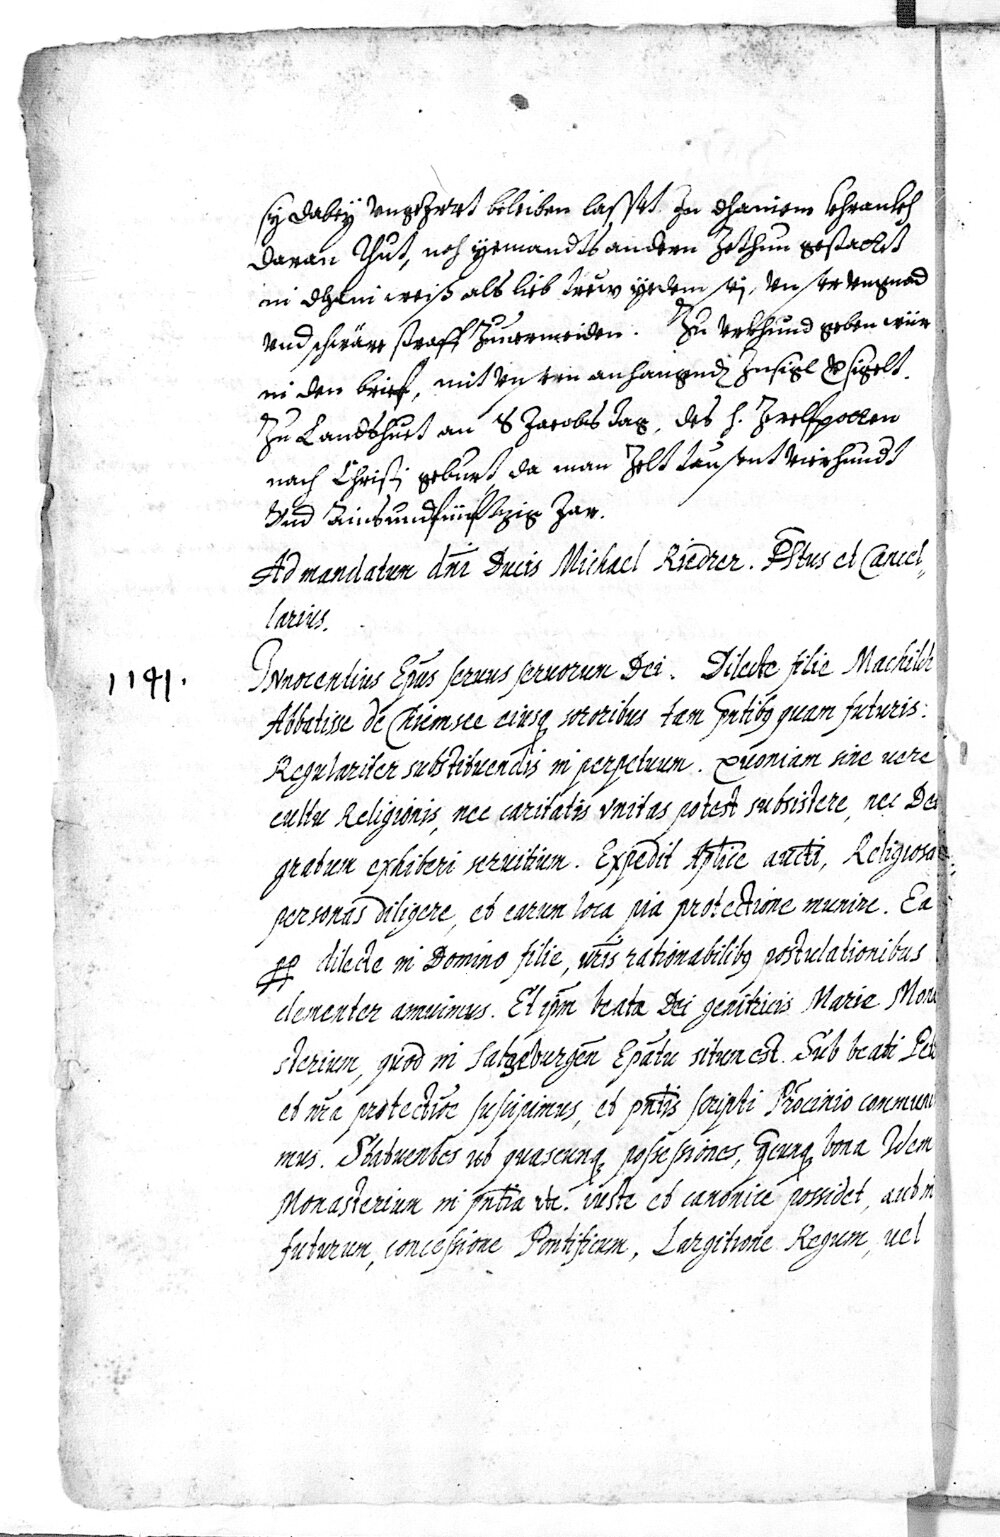 sy dabey ungeirrt beleiben lasset. In dhainem schrankh
daran thut, noh yemandts andern zethun gestadtet
in dhain weiß als lieb trew yedem sej, unser ungnad
und schwäre straff zuvermeiden. Zu urkhund geben wür
in den brief, mit unsern anhangendē Insigl
Zu Landshuet an S Jacobs tag, des h. Zwelfpotten
nach Christj geburt da man zelt tausent vierhundt
Und Ainsundfünffzig Jar.
Ad mandatum dni Ducis Michael Riedrer. et Cancel„
larius.
1141. Innocentius Epus seruus seruorum Dei. Dilecte filie Machildr
Abbatisse de Chiemsee eiusq sororibus tam pntibq quam futuris:
Regulariter substituendis in perpetuum. Quoniam sine uere
cultu Religionis, nec caritatis unitas potest subsistere, nec Deo
gratum exhiberi seruitium. Expedit Aplice aucti, Religiosa
personas diligere, et earum loca pia protectione munire. Ea
pp dilecte in Domino filie, uris rationabilibq postulationibus
clementer annuimus. Et ipm beata Dei genitricis Marie Mona
sterium, quod in Saltzeburgen Epatu situm est. Sub beati Pet
et nra protectioe suscipimus, et pntis scripti Procinio communi
mus. Statuentes ut quascunq possessiones, qcunq bona Idem
Monasterium in pntia etc. iuste et canonice possidet, aut in
futurum, concessione Pontificum, Largitione Regum, uel